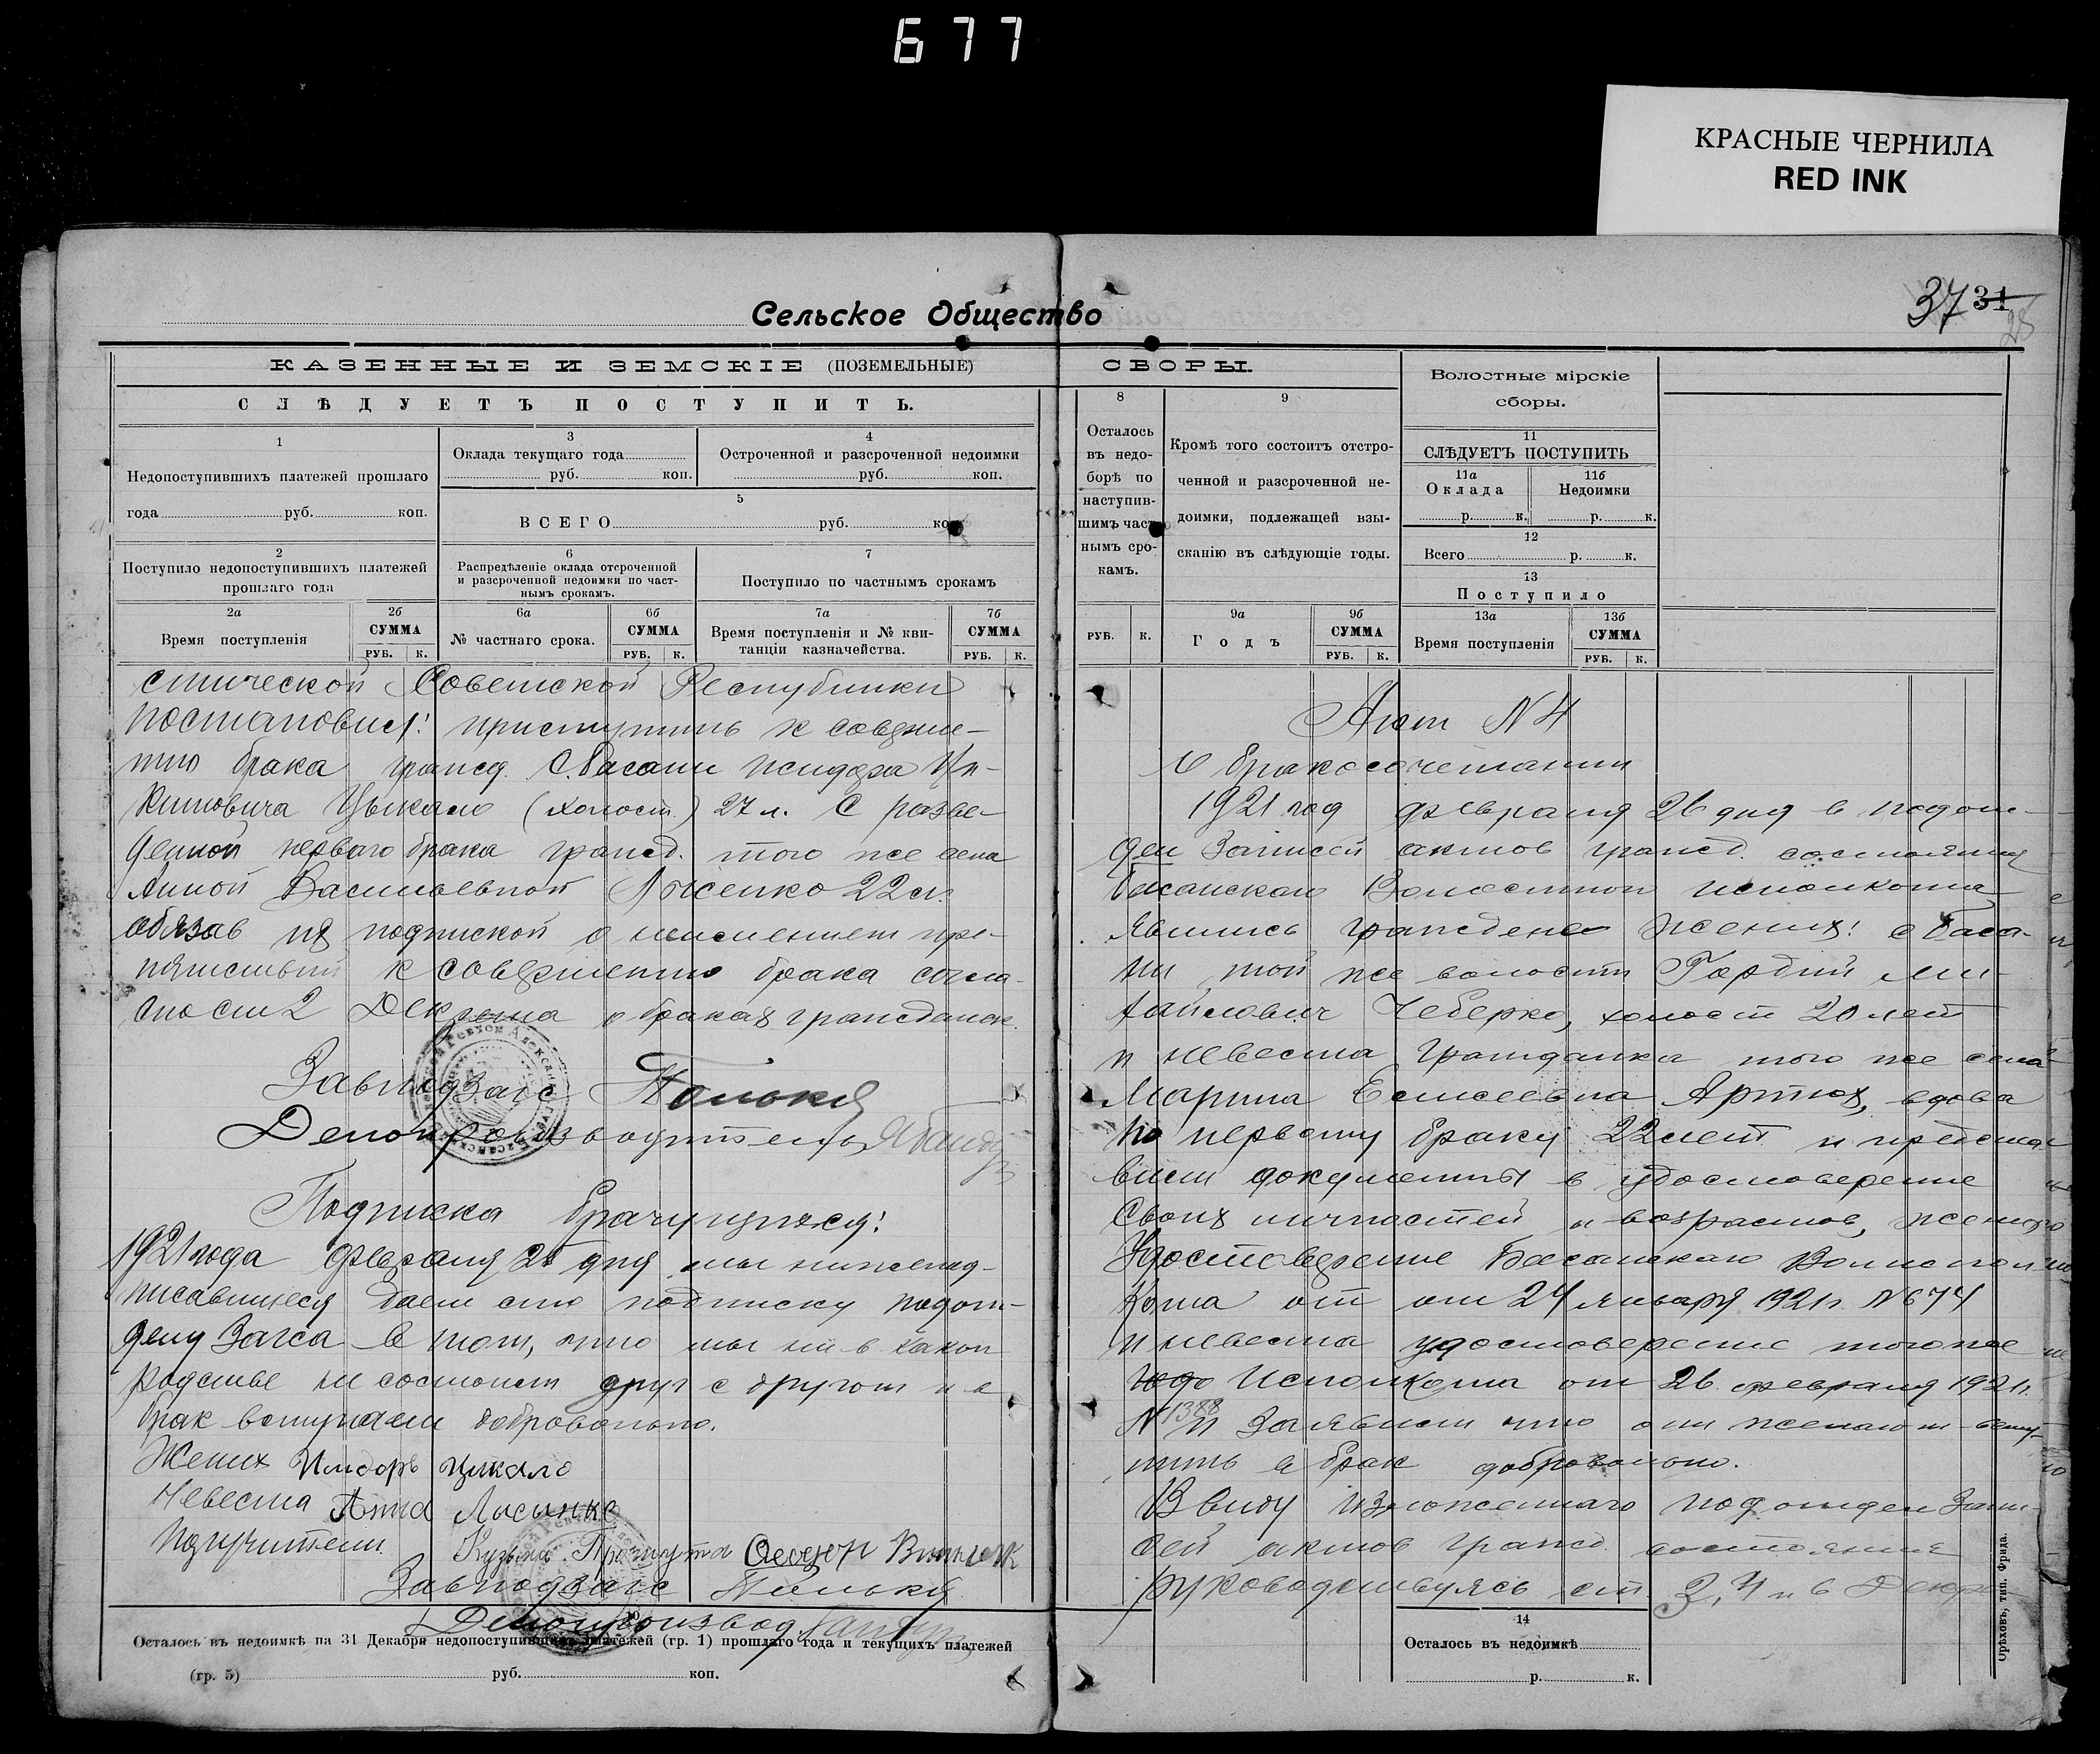 677
КРАСНЫЕ ЧЕРНИЛА
RED INK
37 31
28
Сельское Общество
КАЗЕННЫЕ И ЗЕМСКІЕ (ПОЗЕМЕЛЬНЫЕ) СБОРЫ.
СЛѢДУЕТЪ ПОСТУПИТЬ.
1
Недопоступившихъ платежей прошлаго
года руб. коп.
3
Оклада текущаго года
руб. коп.
4
Остроченной и разсроченной недоимки
руб. коп.
5
ВСЕГО руб. коп.
2
Поступило недопоступившихъ платежей
прошлаго года
6
Распредѣленіе оклада отсроченной
и разсроченной недоимки по част-
нымъ срокамъ.
7
Поступило по частнымъ срокамъ
2а
Время поступленія
2б
СУММА
РУБ. К.
6а
№ частнаго срока.
6б
СУММА
РУБ. К.
7а
Время поступленія и № кви-
танціи казначейства.
7б
СУММА
РУБ. К.
стической Советской Республики
постановил: приступить к соверше-
нию брака гражд. с. Басани Исидора
Цыкало (холост.) 27 л. с разве-
деной первого брака гражд. того же села
Анной Васильевной Лысенко 22 л.
обязав их подпиской о неимением пре-
пятствий к совершению брака согла-
сно ст 2 Декрета о браках гражданск.
Завподзагс
Делопроизводитель
Подписка брачующихся:
1921 года февраля 25 дня мы нижепод-
писавшиеся даем сию подписку подот-
делу Загса в том, что мы ни в каком
родстве не состоим друг с другом и в
брак вступаем добровольно.
Жених Исидоръ Цикало
Невеста Анна Лысенко
Поручители Кузьма
Завподзагс
Делопроизвод
Осталось въ недоимкѣ на 31 Декабря недопоступившихъ платежей (гр. 1) прошлаго года и текущихъ платежей
(гр. 5) руб. коп.
8
Осталось
въ недо-
борѣ по
наступив-
шимъ част-
нымъ сро-
камъ.
РУБ. К.
9
Кромѣ того состоитъ отстро-
ченной и разсроченной не-
доимки, подлежащей взы-
сканію въ слѣдующіе годы.
9а
Годъ
9б
СУММА
РУБ. К.
Волостные мірскіе
сборы.
11
СЛѢДУЕТЪ ПОСТУПИТЬ
11а
Оклада
р. к.
11б
Недоимки
р. к.
12
Всего р. к.
13
Поступило
13а
Время поступленія
13б
СУММА
РУБ. К.
Акт N 4
О бракосочетании
1921 год февраля 26 дня в подот-
дел Записей актов гражд. состояния
Басанскаго Волостного исполкома
явились граждане жених: с Баса-
ни той же волости Гордий Ми-
хайлович Чеберко, холост 20 лет
и невеста гражданка того же села
Марина Елисеевна Артюх, вдова
по первому браку 22 лет и предста
вили документы в удостоверение
своих личностей и возрастов, жених
Удостоверение Басанскаго Волиспол
кома от от 24 января 1921 г. N 674
и невеста удостоверение того же
Исполкома от 26 февраля 1921 г.
N 1388 и Заявили что они желают всту-
пить в брак добровольно.
Ввиду изложеннаго подотдел Запи-
сей актов гражд. состояния
руководствуясь ст. 3, 4 и 6 Декре
14
Осталось въ недоимкѣ
р. к.
Орѣховъ, тип. Фрида.